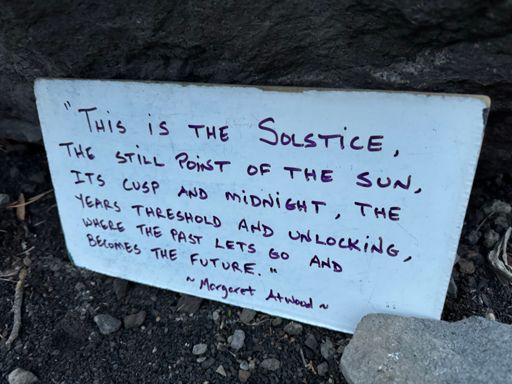 "THIS IS THE SOLSTICE,
THE STILL POINT OF THE SUN,
ITS CUSP AND MIDNIGHT, THE
YEARS THRESHOLD AND UNLOCKING,
WHERE THE PAST LETS GO AND
BECOMES THE FUTURE."
~ Margaret Atwood ~